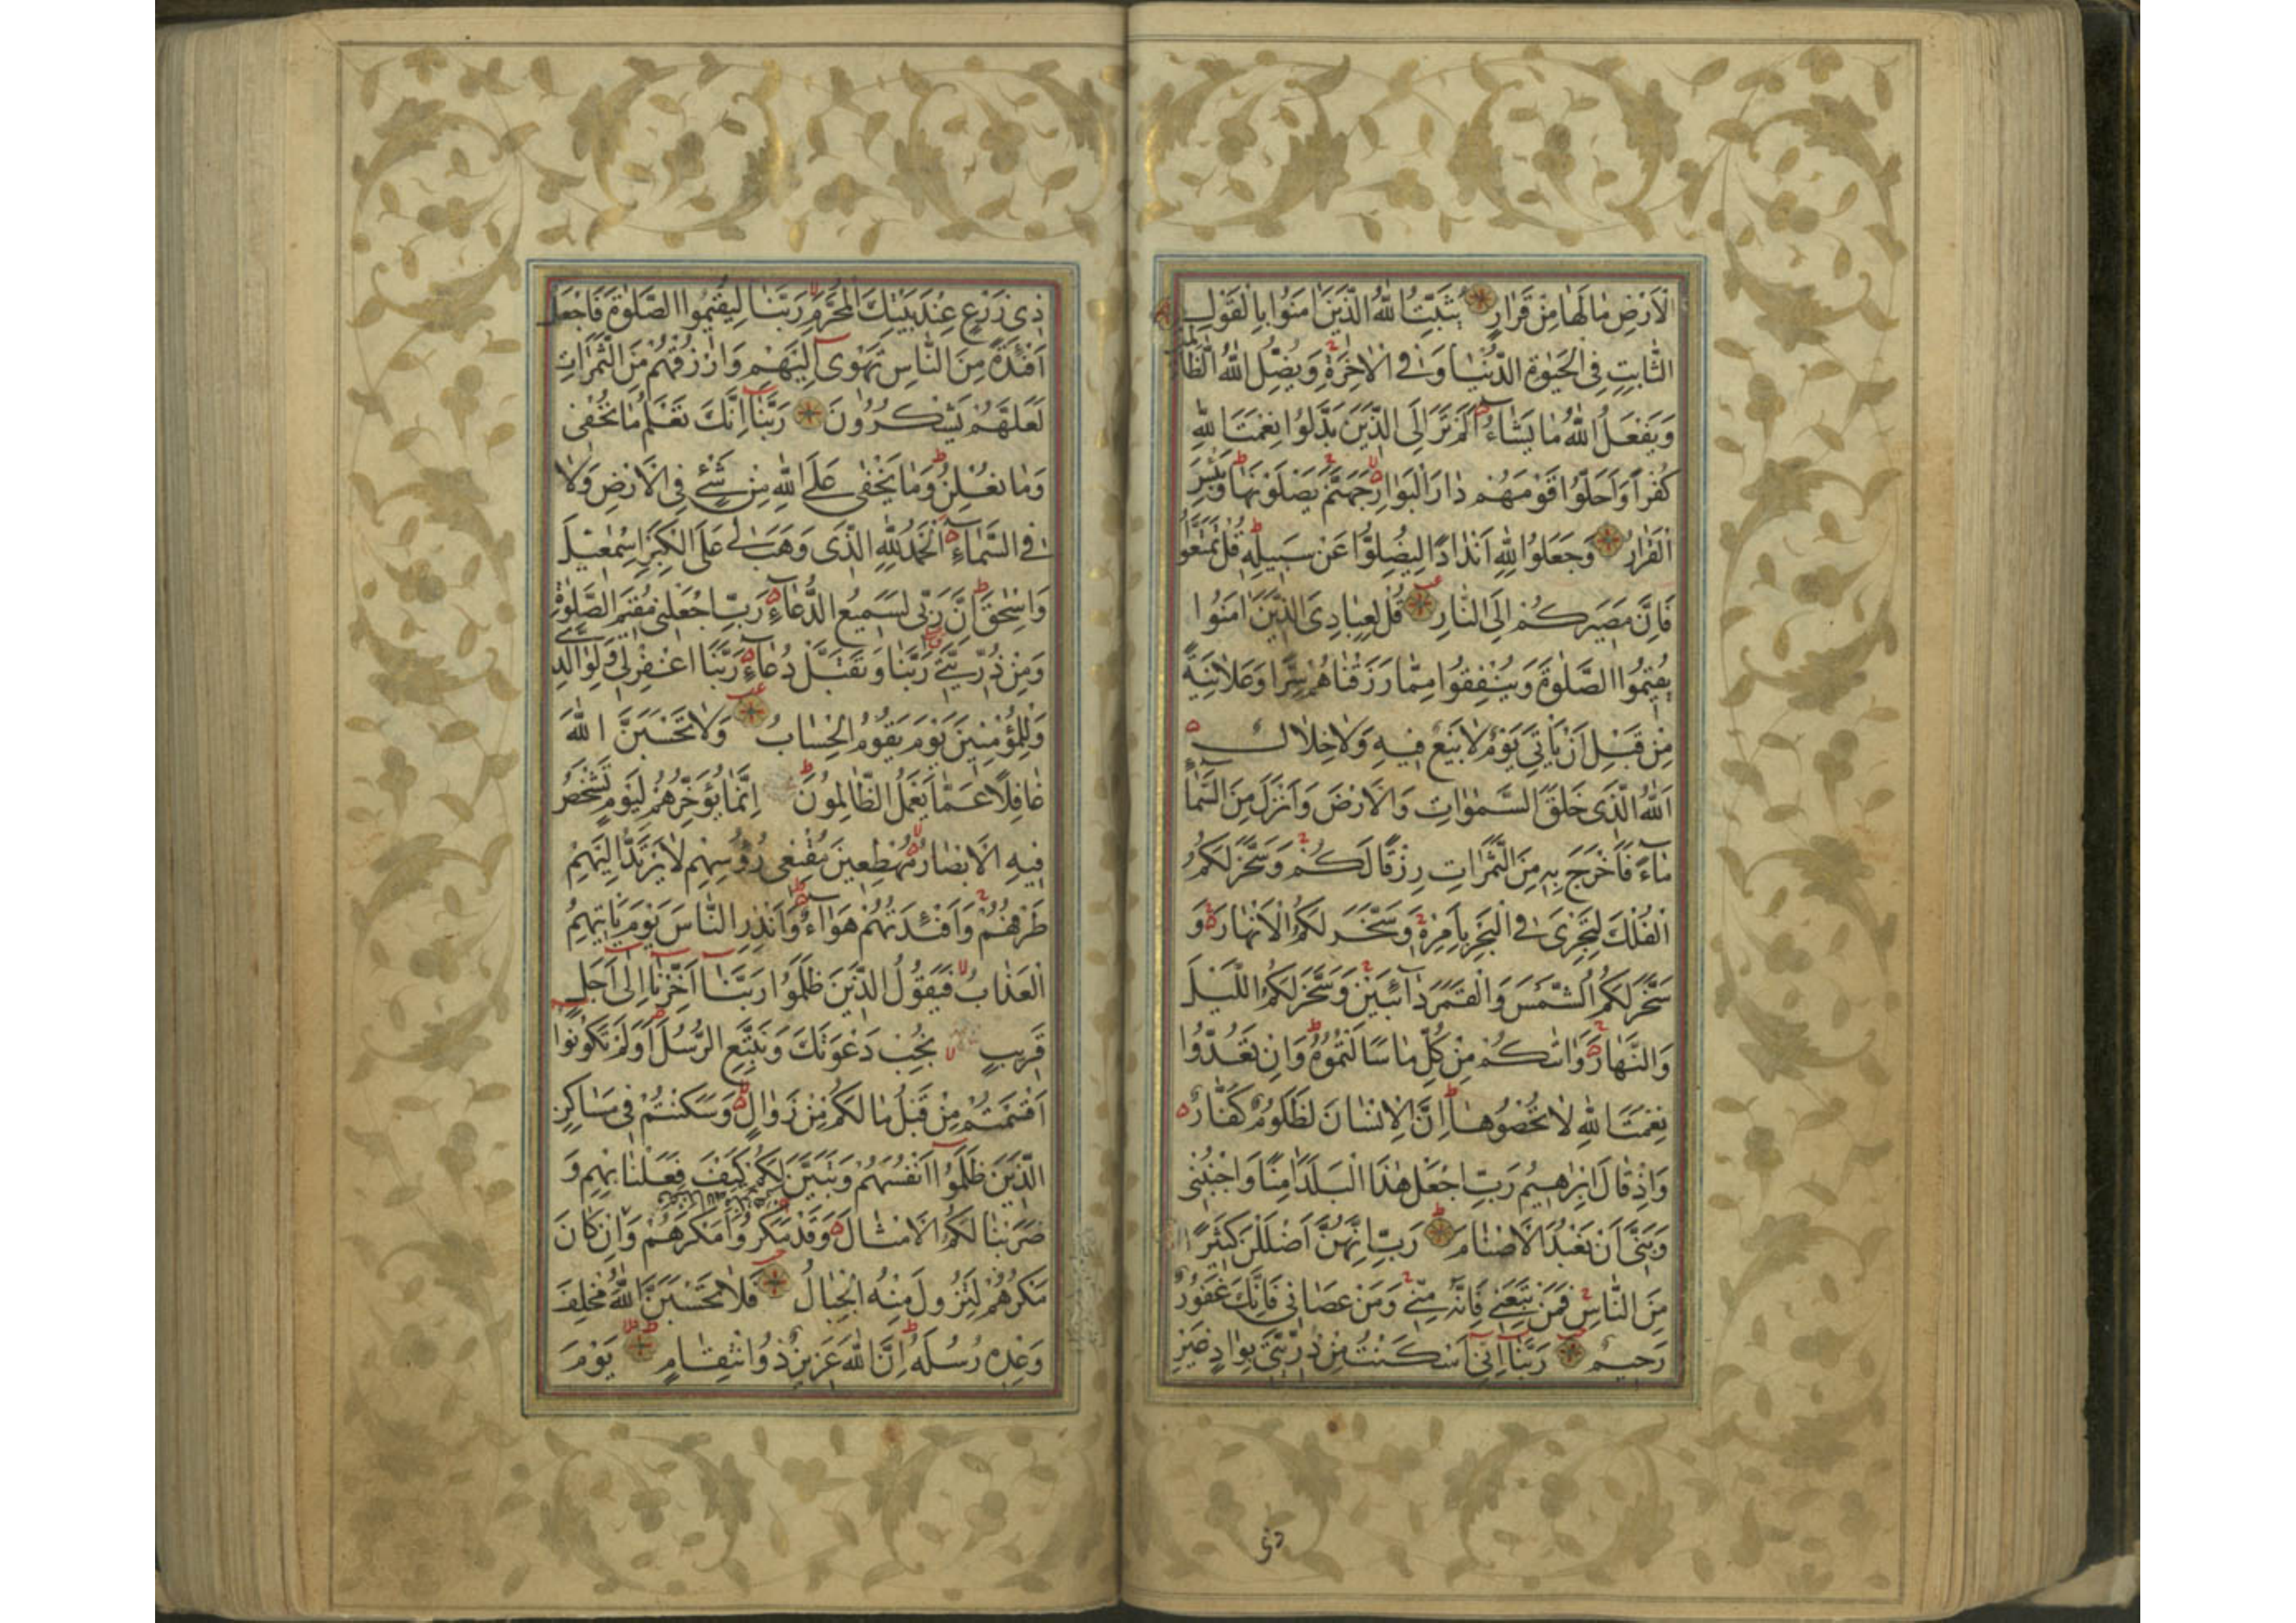 الْاَرْضِ مَا لَهَا مِنْ قَرَارٍ يُثَبِّتُ اللّٰهُ الَّذِيْنَ اٰمَنُوا بِالْقَوْلِ
الثَّابِتِ فِى الْحَيٰوةِ الدُّنْيَا وَفِى الْاٰخِرَةِ وَيُضِلُّ اللّٰهُ الظَّالِمِيْنَ
وَيَفْعَلُ اللّٰهُ مَا يَشَاءُ اَلَمْ تَرَ اِلَى الَّذِيْنَ بَدَّلُوا نِعْمَتَ اللّٰهِ
كُفْرًا وَاَحَلُّوا قَوْمَهُمْ دَارَ الْبَوَارِ جَهَنَّمَ يَصْلَوْنَهَا وَبِئْسَ
الْقَرَارُ وَجَعَلُوا لِلّٰهِ اَنْدَادًا لِيُضِلُّوا عَنْ سَبِيلِهِ قُلْ تَمَتَّعُوا
فَاِنَّ مَصِيرَكُمْ اِلَى النَّارِ قُلْ لِعِبَادِىَ الَّذِيْنَ اٰمَنُوا
يُقِيمُوا الصَّلٰوةَ وَيُنْفِقُوا مِمَّا رَزَقْنَاهُمْ سِرًّا وَعَلَانِيَةً
مِنْ قَبْلِ اَنْ يَأْتِىَ يَوْمٌ لَا بَيْعٌ فِيهِ وَلَا خِلَالٌ
اَللّٰهُ الَّذِى خَلَقَ السَّمٰوَاتِ وَالْاَرْضَ وَاَنْزَلَ مِنَ السَّمَاءِ
مَاءً فَاَخْرَجَ بِهِ مِنَ الثَّمَرَاتِ رِزْقًا لَكُمْ وَسَخَّرَ لَكُمُ
الْفُلْكَ لِتَجْرِىَ فِى الْبَحْرِ بِاَمْرِهِ وَسَخَّرَ لَكُمُ الْاَنْهَارَ وَ
سَخَّرَ لَكُمُ الشَّمْسَ وَالْقَمَرَ دَائِبَيْنِ وَسَخَّرَ لَكُمُ اللَّيْلَ
وَالنَّهَارَ وَاٰتٰكُمْ مِنْ كُلِّ مَا سَاَلْتُمُوهُ وَاِنْ تَعُدُّوا
نِعْمَتَ اللّٰهِ لَا تُحْصُوهَا اِنَّ الْاِنْسَانَ لَظَلُومٌ كَفَّارٌ
وَاِذْ قَالَ اِبْرٰهِيمُ رَبِّ اجْعَلْ هٰذَا الْبَلَدَ اٰمِنًا وَاجْنُبْنِى
وَبَنِىَّ اَنْ نَعْبُدَ الْاَصْنَامَ رَبِّ اِنَّهُنَّ اَضْلَلْنَ كَثِيرًا
مِنَ النَّاسِ فَمَنْ تَبِعَنِى فَاِنَّهُ مِنِّى وَمَنْ عَصَانِى فَاِنَّكَ غَفُورٌ
رَحِيمٌ رَبَّنَا اِنِّى اَسْكَنْتُ مِنْ ذُرِّيَّتِى بِوَادٍ غَيْرِ
ذِى
ذِى زَرْعٍ عِنْدَ بَيْتِكَ الْمُحَرَّمِ رَبَّنَا لِيُقِيمُوا الصَّلٰوةَ فَاجْعَلْ
اَفْئِدَةً مِنَ النَّاسِ تَهْوِى اِلَيْهِمْ وَارْزُقْهُمْ مِنَ الثَّمَرَاتِ
لَعَلَّهُمْ يَشْكُرُونَ رَبَّنَا اِنَّكَ تَعْلَمُ مَا نُخْفِى
وَمَا نُعْلِنُ وَمَا يَخْفٰى عَلَى اللّٰهِ مِنْ شَىْءٍ فِى الْاَرْضِ وَلَا
فِى السَّمَاءِ اَلْحَمْدُ لِلّٰهِ الَّذِى وَهَبَ لِى عَلَى الْكِبَرِ اِسْمٰعِيلَ
وَاِسْحٰقَ اِنَّ رَبِّى لَسَمِيعُ الدُّعَاءِ رَبِّ اجْعَلْنِى مُقِيمَ الصَّلٰوةِ
وَمِنْ ذُرِّيَّتِى رَبَّنَا وَتَقَبَّلْ دُعَاءِ رَبَّنَا اغْفِرْ لِى وَلِوَالِدَىَّ
وَلِلْمُؤْمِنِينَ يَوْمَ يَقُومُ الْحِسَابُ وَلَا تَحْسَبَنَّ اللّٰهَ
غَافِلًا عَمَّا يَعْمَلُ الظَّالِمُونَ اِنَّمَا يُؤَخِّرُهُمْ لِيَوْمٍ تَشْخَصُ
فِيهِ الْاَبْصَارُ مُهْطِعِينَ مُقْنِعِى رُؤُسِهِمْ لَا يَرْتَدُّ اِلَيْهِمْ
طَرْفُهُمْ وَاَفْئِدَتُهُمْ هَوَاءٌ وَاَنْذِرِ النَّاسَ يَوْمَ يَأْتِيهِمُ
الْعَذَابُ فَيَقُولُ الَّذِيْنَ ظَلَمُوا رَبَّنَا اَخِّرْنَا اِلٰى اَجَلٍ
قَرِيبٍ نُجِبْ دَعْوَتَكَ وَنَتَّبِعِ الرُّسُلَ اَوَلَمْ تَكُونُوا
اَقْسَمْتُمْ مِنْ قَبْلُ مَا لَكُمْ مِنْ زَوَالٍ وَسَكَنْتُمْ فِى مَسَاكِنِ
الَّذِيْنَ ظَلَمُوا اَنْفُسَهُمْ وَتَبَيَّنَ لَكُمْ كَيْفَ فَعَلْنَا بِهِمْ وَ
ضَرَبْنَا لَكُمُ الْاَمْثَالَ وَقَدْ مَكَرُوا مَكْرَهُمْ وَاِنْ كَانَ
مَكْرُهُمْ لِتَزُولَ مِنْهُ الْجِبَالُ فَلَا تَحْسَبَنَّ اللّٰهَ مُخْلِفَ
وَعْدِهِ رُسُلَهُ اِنَّ اللّٰهَ عَزِيزٌ ذُو انْتِقَامٍ يَوْمَ